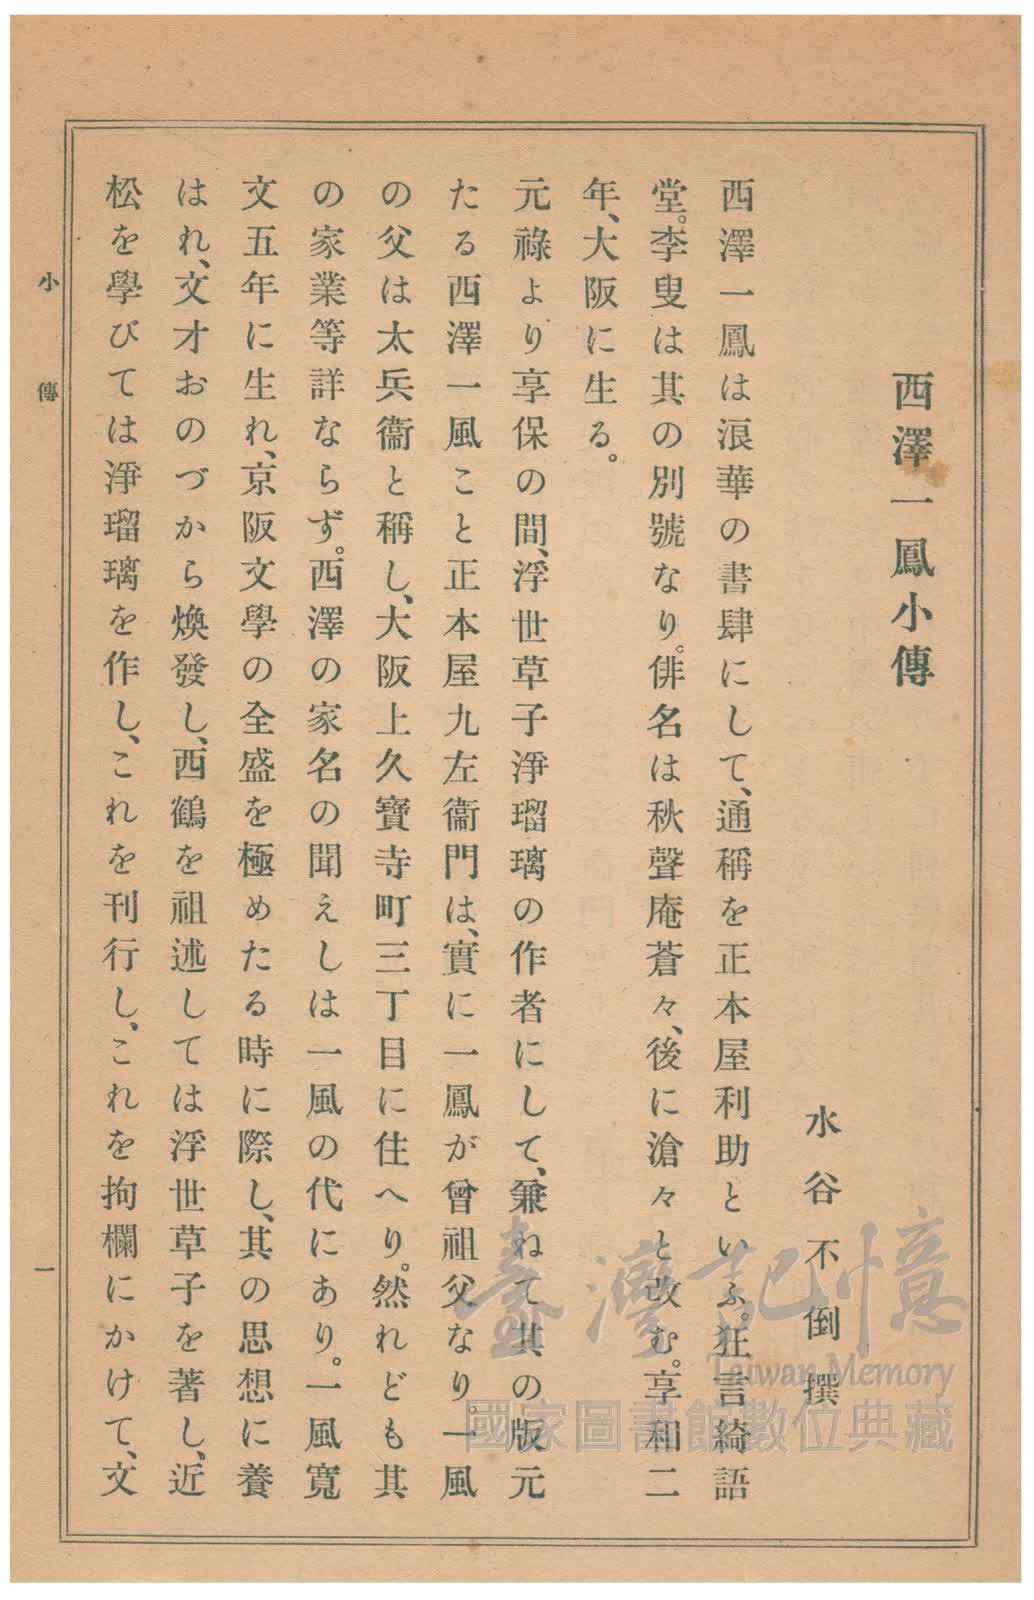 西澤一鳳小傳
水谷不倒撰
西澤一鳳は浪華の書肆にして、通稱を正本屋利助といふ。狂言綺語
堂。李叟は其の別號なり。俳名は秋聲庵蒼々、後に滄々と改む。享和二
年、大阪に生る。
元祿より享保の間、浮世草子淨瑠璃の作者にして、兼ねて其の版元
たる西澤一風こと正本屋九左衞門は、實に一鳳が曾祖父なり。一風
の父は太兵衞と稱し、大阪上久寶寺町三丁目に住へり。然れども其
の家業等詳ならず。西澤の家名の聞えしは一風の代にあり。一風寬
文五年に生れ、京阪文學の全盛を極めたる時に際し、其の思想に養
はれ、文才おのづから煥發し、西鶴を祖述しては浮世草子を著し、近
松を學びては淨瑠璃を作し、これを刊行し、これを拘欄にかけて、文
小傳
一
臺灣記憶
Taiwan Memory
國家圖書館數位典藏